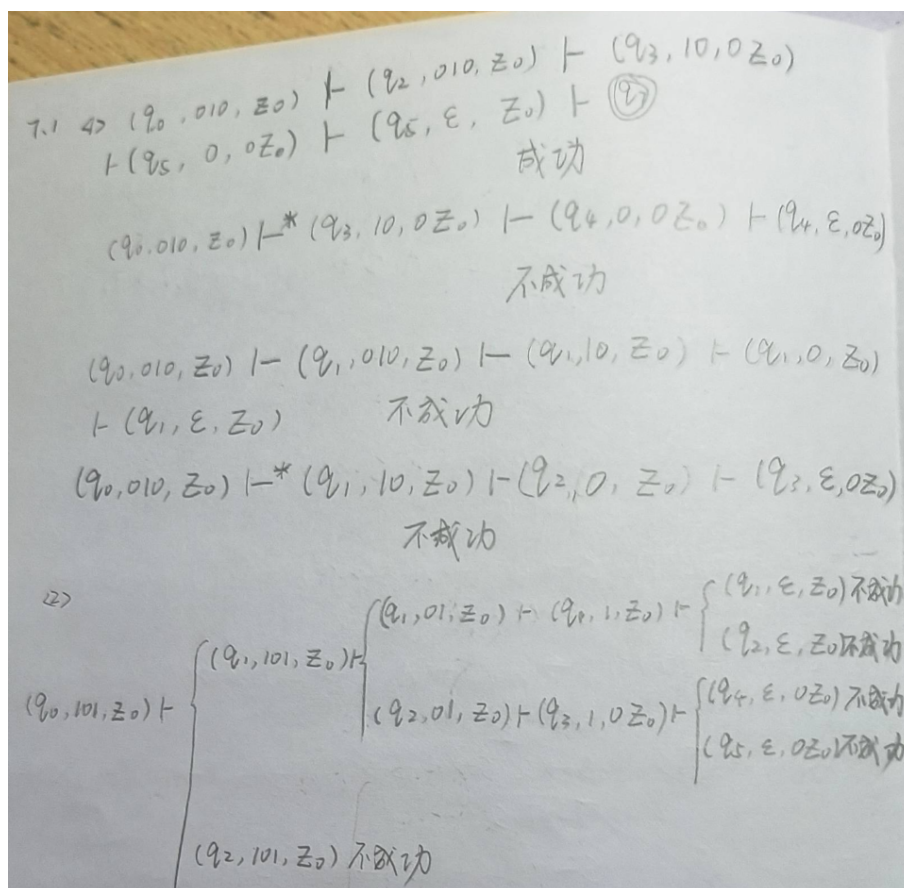 7.1 <1> (q₀, 010, Z₀) ⊢ (q₂, 010, Z₀) ⊢ (q₃, 10, 0Z₀)
⊢ (q₅, 0, 0Z₀) ⊢ (q₅, ε, Z₀) ⊢ q₇
成功
(q₀, 010, Z₀) ⊢* (q₃, 10, 0Z₀) ⊢ (q₄, 0, 0Z₀) ⊢ (q₄, ε, 0Z₀)
不成功
(q₀, 010, Z₀) ⊢ (q₁, 010, Z₀) ⊢ (q₁, 10, Z₀) ⊢ (q₁, 0, Z₀)
⊢ (q₁, ε, Z₀) 不成功
(q₀, 010, Z₀) ⊢* (q₁, 10, Z₀) ⊢ (q₂, 0, Z₀) ⊢ (q₃, ε, 0Z₀)
不成功
<2>
(q₀, 101, Z₀) ⊢
(q₁, 101, Z₀) ⊢
(q₁, 01, Z₀) ⊢ (q₁, 1, Z₀) ⊢
(q₁, ε, Z₀) 不成功
(q₂, ε, Z₀) 不成功
(q₂, 01, Z₀) ⊢ (q₃, 1, 0Z₀) ⊢
(q₄, ε, 0Z₀) 不成功
(q₅, ε, 0Z₀) 不成功
(q₂, 101, Z₀) 不成功